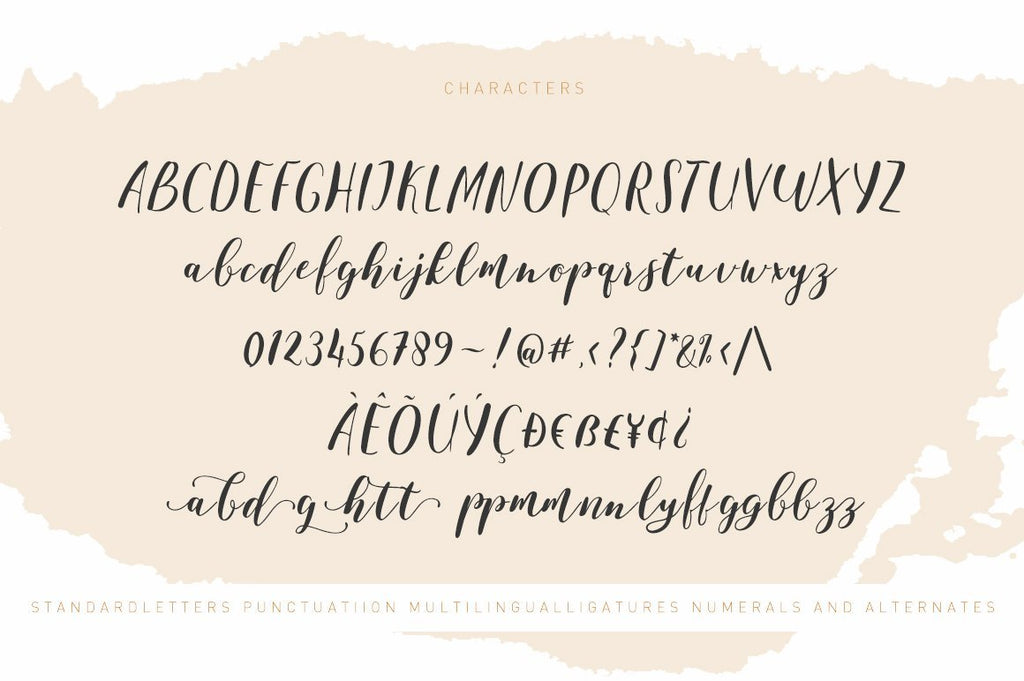 CHARACTERS
ABCDEFGHIJKLMNOPQRSTUVWXYZ
abcdefghijklmnopqrstuvwxyz
0123456789~!@#,‹?{]*&%‹/\
ÀÊÕÚÝÇÐ€ß£¥¢¿
abdg htt ppmmnnlyfftggbbzz
STANDARDLETTERS PUNCTUATIION MULTILINGUALLIGATURES NUMERALS AND ALTERNATES